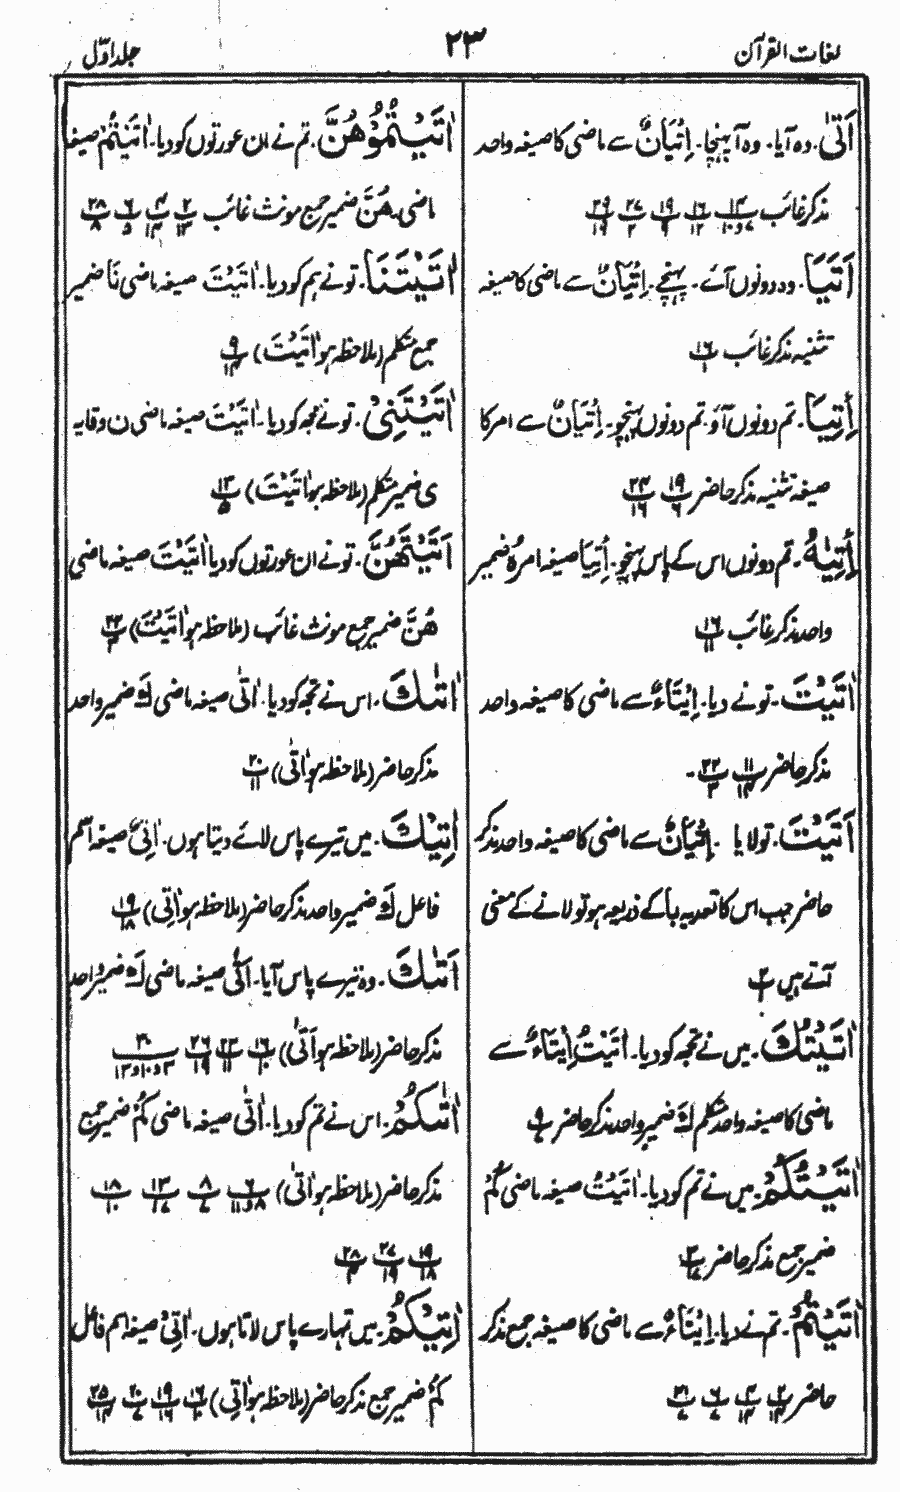 لغات القرآن
۲۳
جلد اوّل
اَتٰی۔ وہ آیا۔ وہ آ پہنچا۔ اِتْیَانٌ سے ماضی کا صیغہ واحد
مذکر غائب
اَتَیَا۔ وہ دونوں آئے۔ پہنچے۔ اِتْیَانٌ سے ماضی کا صیغہ
تثنیہ مذکر غائب ۱۶/۱
اِتِیَا۔ تم دونوں آؤ۔ تم دونوں پہنچو۔ اِتْیَانٌ سے امر کا
صیغہ تثنیہ مذکر حاضر ۱۹/۶ ۲۴/۱۶
اِتِیٰہُ۔ تم دونوں اس کے پاس پہنچو۔ اُتِیَا صیغہ امر ہُ ضمیر
واحد مذکر غائب ۱۶/۱۱
اٰتَیْتَ۔ تو نے دیا۔ اِیْتَاءٌ سے ماضی کا صیغہ واحد
مذکر حاضر ۱۱/۱۴ ۲۲/۳۔
اَتَیْتَ۔ تو لایا۔ اِتْیَانٌ سے ماضی کا صیغہ واحد مذکر
حاضر جب اس کا تعدیہ بأ کے ذریعہ ہو تو لانے کے معنی
آتے ہیں
اٰتَیْتُكَ۔ میں نے تجھ کو دیا۔ اٰتَیْتُ اِیْتَاءٌ سے
ماضی کا صیغہ واحد متکلم كَ ضمیر واحد مذکر حاضر
اٰتَیْتُكُمْ۔ میں نے تم کو دیا۔ اٰتَیْتُ صیغہ ماضی كُمْ
ضمیر جمع مذکر حاضر
اٰتَیْتُمْ۔ تم نے دیا۔ اِیْتَاءٌ سے ماضی کا صیغہ جمع مذکر
حاضر ۲/۱۴ ۴/۱۴ ۶/۷ ۲۱/۷
اٰتَیْتُمُوْهُنَّ۔ تم نے ان عورتوں کو دیا۔ اٰتَیْتُمْ صیغہ
ماضی۔ هُنَّ ضمیر جمع مونث غائب ۲/۱۳ ۴/۱۴ ۶/۵ ۲۸/۸
اٰتَیْتَنَا۔ تو نے ہم کو دیا۔ اٰتَیْتَ صیغہ ماضی نَا ضمیر
جمع متکلم (ملاحظہ ہو اٰتَیْتَ) ۹/۱۴
اٰتَیْتَنِیْ۔ تو نے مجھ کو دیا۔ اٰتَیْتَ صیغہ ماضی ن وقایہ
ی ضمیر متکلم (ملاحظہ ہو اٰتَیْتَ) ۱۳/۵
اٰتَیْتَهُنَّ۔ تو نے ان عورتوں کو دیا اٰتَیْتَ صیغہ ماضی
هُنَّ ضمیر جمع مونث غائب (ملاحظہ ہو اٰتَیْتَ) ۲۲/۳
اٰتٰىكَ۔ اس نے تجھ کو دیا۔ اٰتٰی صیغہ ماضی كَ ضمیر واحد
مذکر حاضر (ملاحظہ ہو اٰتٰی) ۲۰/۱۱
اٰتِیْكَ۔ میں تیرے پاس لائے دیتا ہوں۔ اٰتِیْ صیغہ اسم
فاعل كَ ضمیر واحد مذکر حاضر (ملاحظہ ہو اٰتِی) ۱۹/۱۸
اَتٰىكَ۔ وہ تیرے پاس آیا۔ اَتٰی صیغہ ماضی كَ ضمیر واحد
مذکر حاضر (ملاحظہ ہو اَتٰی) ۱۶/۱۰ ۲۳/۱۱ ۲۶/۱۹ ۳۰/۳و۱۰و۱۳
اٰتٰىكُمْ۔ اس نے تم کو دیا۔ اٰتٰی صیغہ ماضی كُمْ ضمیر جمع
مذکر حاضر (ملاحظہ ہو اٰتٰی) ۶/۸و۱۱ ۸/۷ ۱۳/۱۷ ۱۸/۱۰
۱۹/۱۸ ۲۷/۱۹ ۲۸/۴
اٰتِیْكُمْ۔ میں تمہارے پاس لاتا ہوں۔ اٰتِیْ صیغہ اسم فاعل
كُمْ ضمیر جمع مذکر حاضر (ملاحظہ ہو اٰتِی) ۱۶/۱۰ ۱۹/۱۶ ۲۰/۷ ۲۵/۱۴